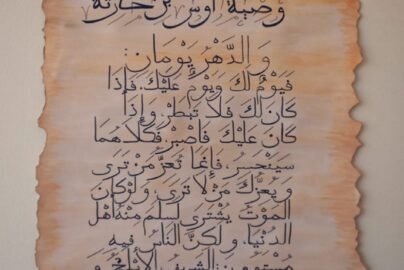 وصية أوس بن حارثة
و الدَّهْرُ يَوْمَان:
فَيَوْمٌ لَكَ وَيَوْمٌ عَلَيْكَ. فَإِذَا
كَانَ لَكَ فَلَا تَبْطَرْ وَإِذَا
كَانَ عَلَيْكَ فَاصْبِرْ فَكِلَاهُمَا
سَيَنْحَسِرُ. فَإِنَّمَا تَعُزُّ مَنْ تَرَى
وَ يَعُزُّكَ مَنْ لَا تَرَى. وَ لَوْ كَانَ
الْمَوْتُ يُشْتَرَى لَسَلِمَ مِنْهُ أَهْلُ
الدُّنْيَا. وَ لَكِنَّ النَّاسَ فِيهِ
مُسْتَوُونَ: الشَّرِيفُ الْأَبْلَجُ وَ